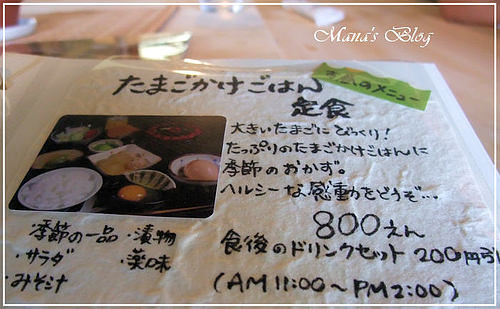 Mana's Blog
たまごかけごはん
定食
メニュー
大きいたまごにびっくり!
たっぷりのたまごかけごはんに
季節のおかず。
ヘルシーな感動をどうぞ…
800えん
食後のドリンクセット 200円引
(AM11:00~PM2:00)
季節の一品・漬物
・サラダ ・薬味
・みそ汁